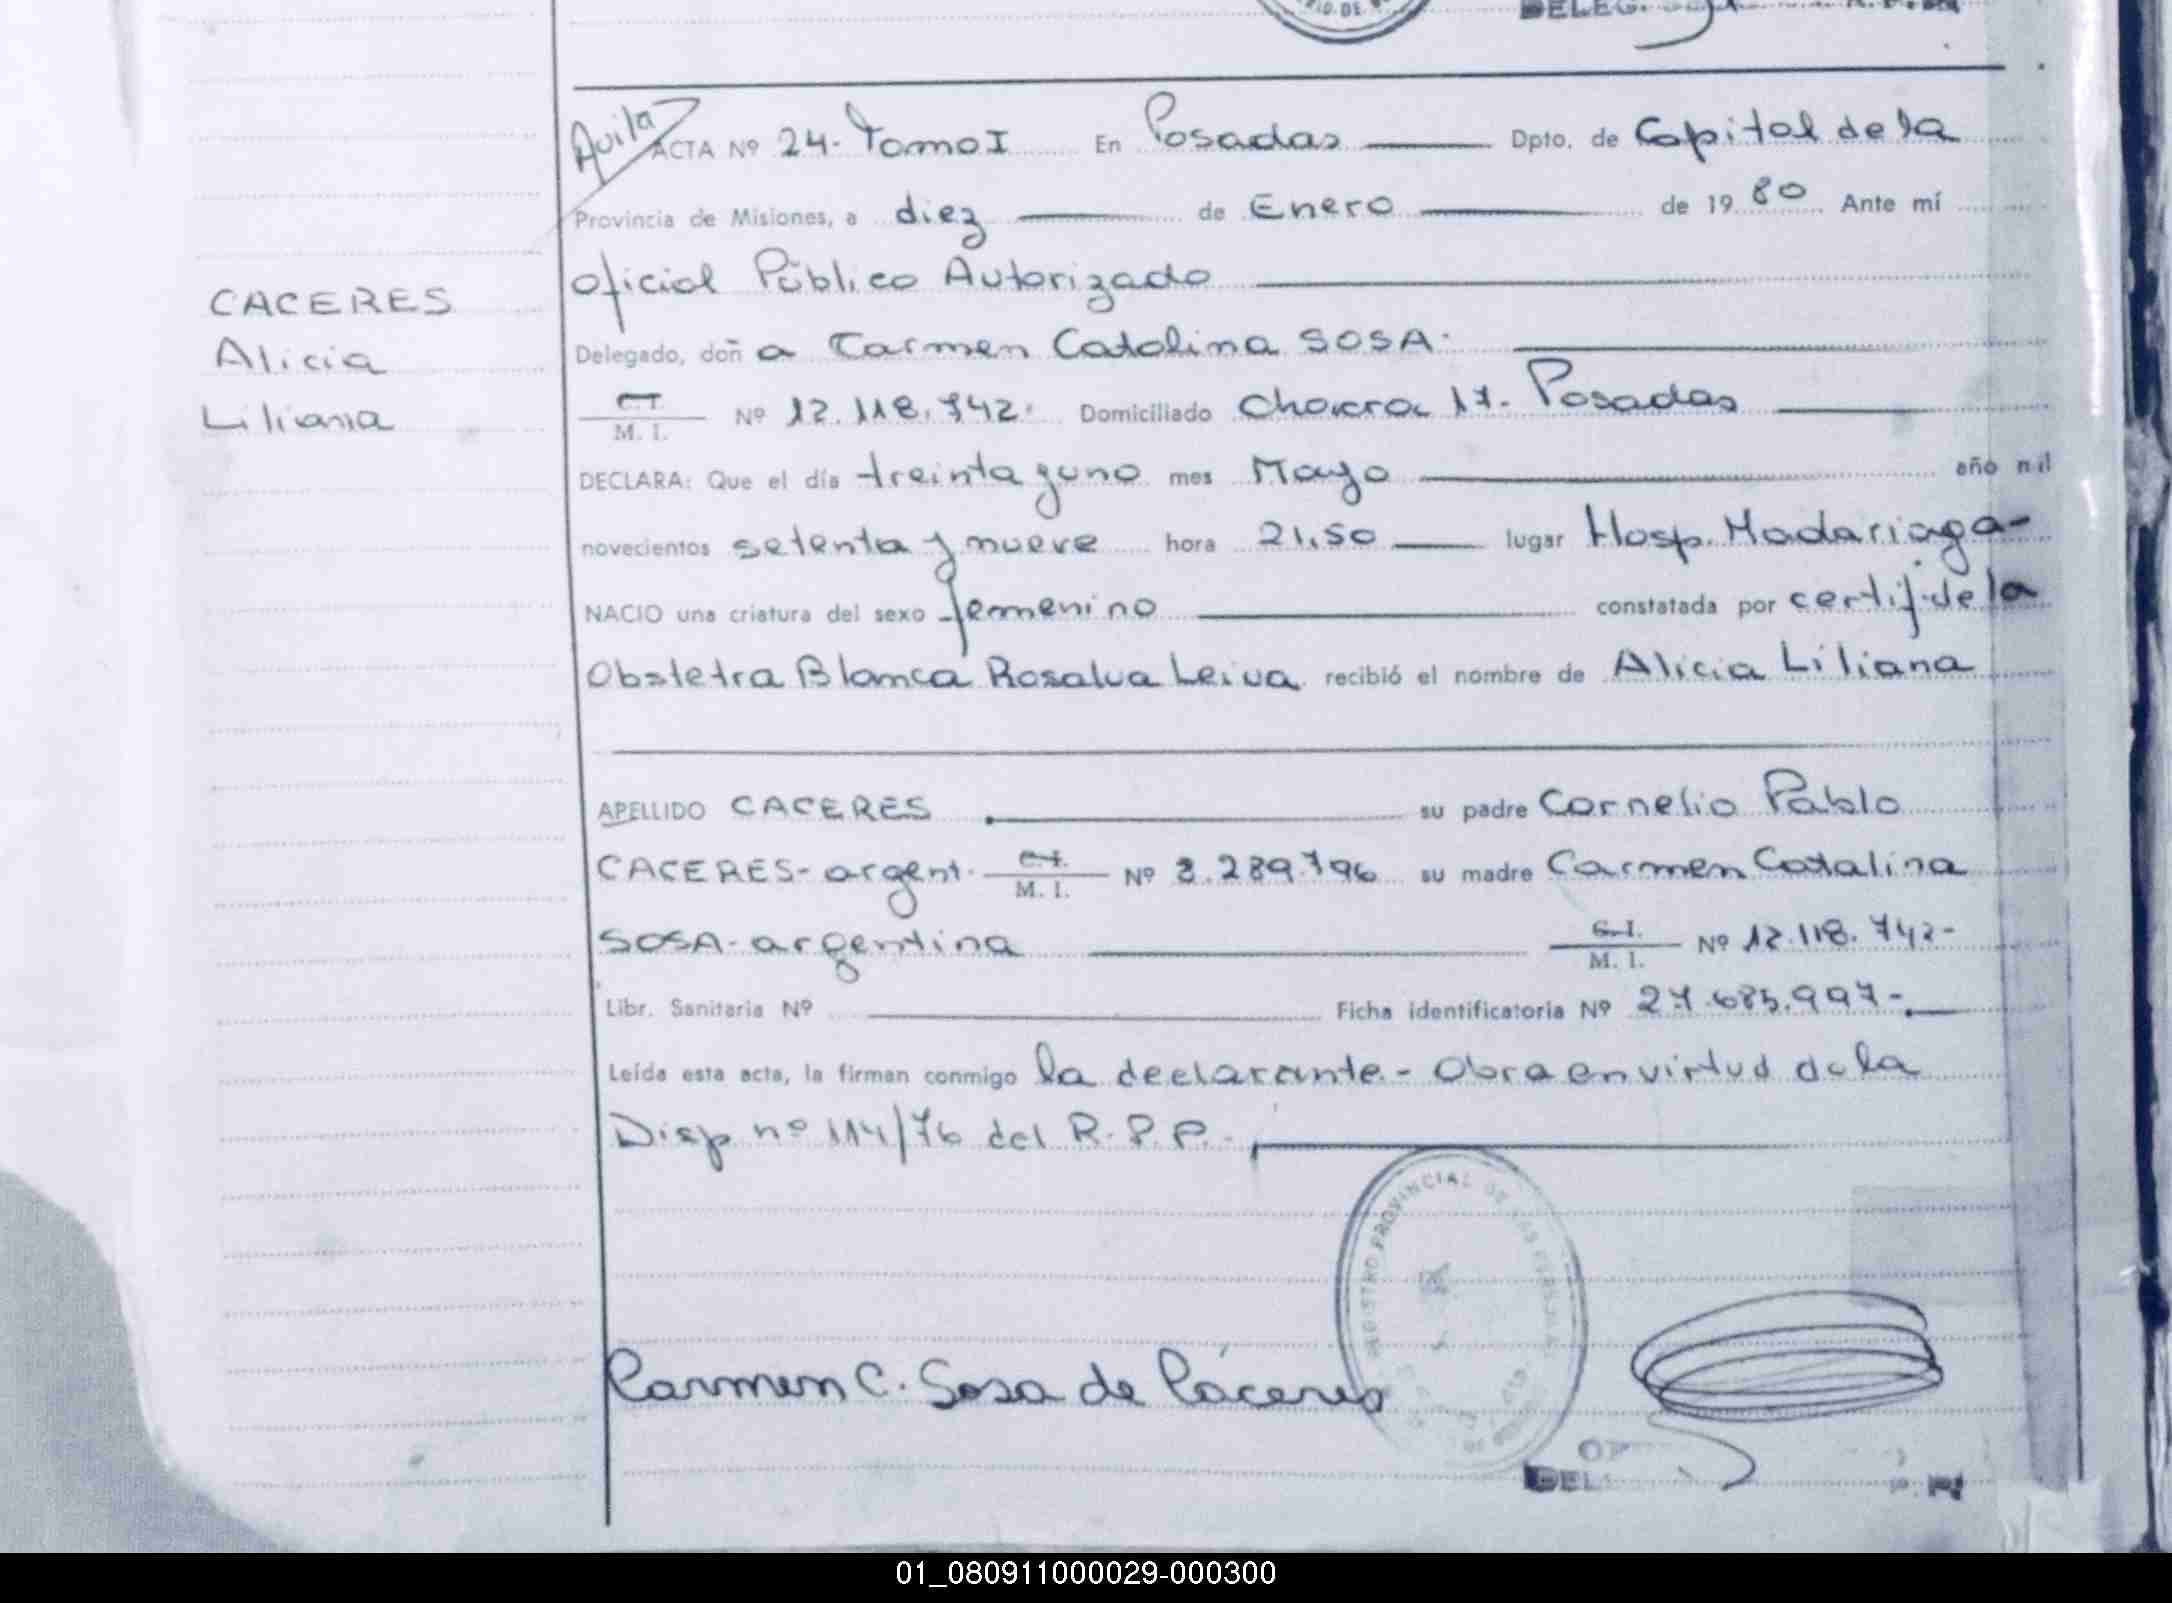 DELEG.
Avila
ACTA Nº 24- Tomo I En Posadas Dpto. de Capital de la
Provincia de Misiones, a diez de Enero de 1980 Ante mí
Oficial Público Autorizado
CACERES
Alicia
Liliana
Delegado, doña Carmen Catalina SOSA.
C.I.
M. I. Nº 12.118.742. Domiciliado Chacra 17- Posadas
DECLARA: Que el día treinta y uno mes Mayo año mil
novecientos setenta y nueve hora 21,50 lugar Hosp. Madariaga-
NACIO una criatura del sexo femenino constatada por certif. de la
Obstetra Blanca Rosalva Leiva recibió el nombre de Alicia Liliana
APELLIDO CACERES su padre Cornelio Pablo
CACERES- argent. C.I.
M. I. Nº 8.289.796 su madre Carmen Catalina
SOSA- argentina C.I.
M. I. Nº 12.118.742-
Libr. Sanitaria Nº Ficha identificatoria Nº 27.685.997-
Leída esta acta, la firman conmigo la declarante.- Obra en virtud de la
Disp nº 114/76 del R.P.P.-
REGISTRO PROVINCIAL DE LAS PERSONAS
Carmen C. Sosa de Cáceres
DEL
01_080911000029-000300